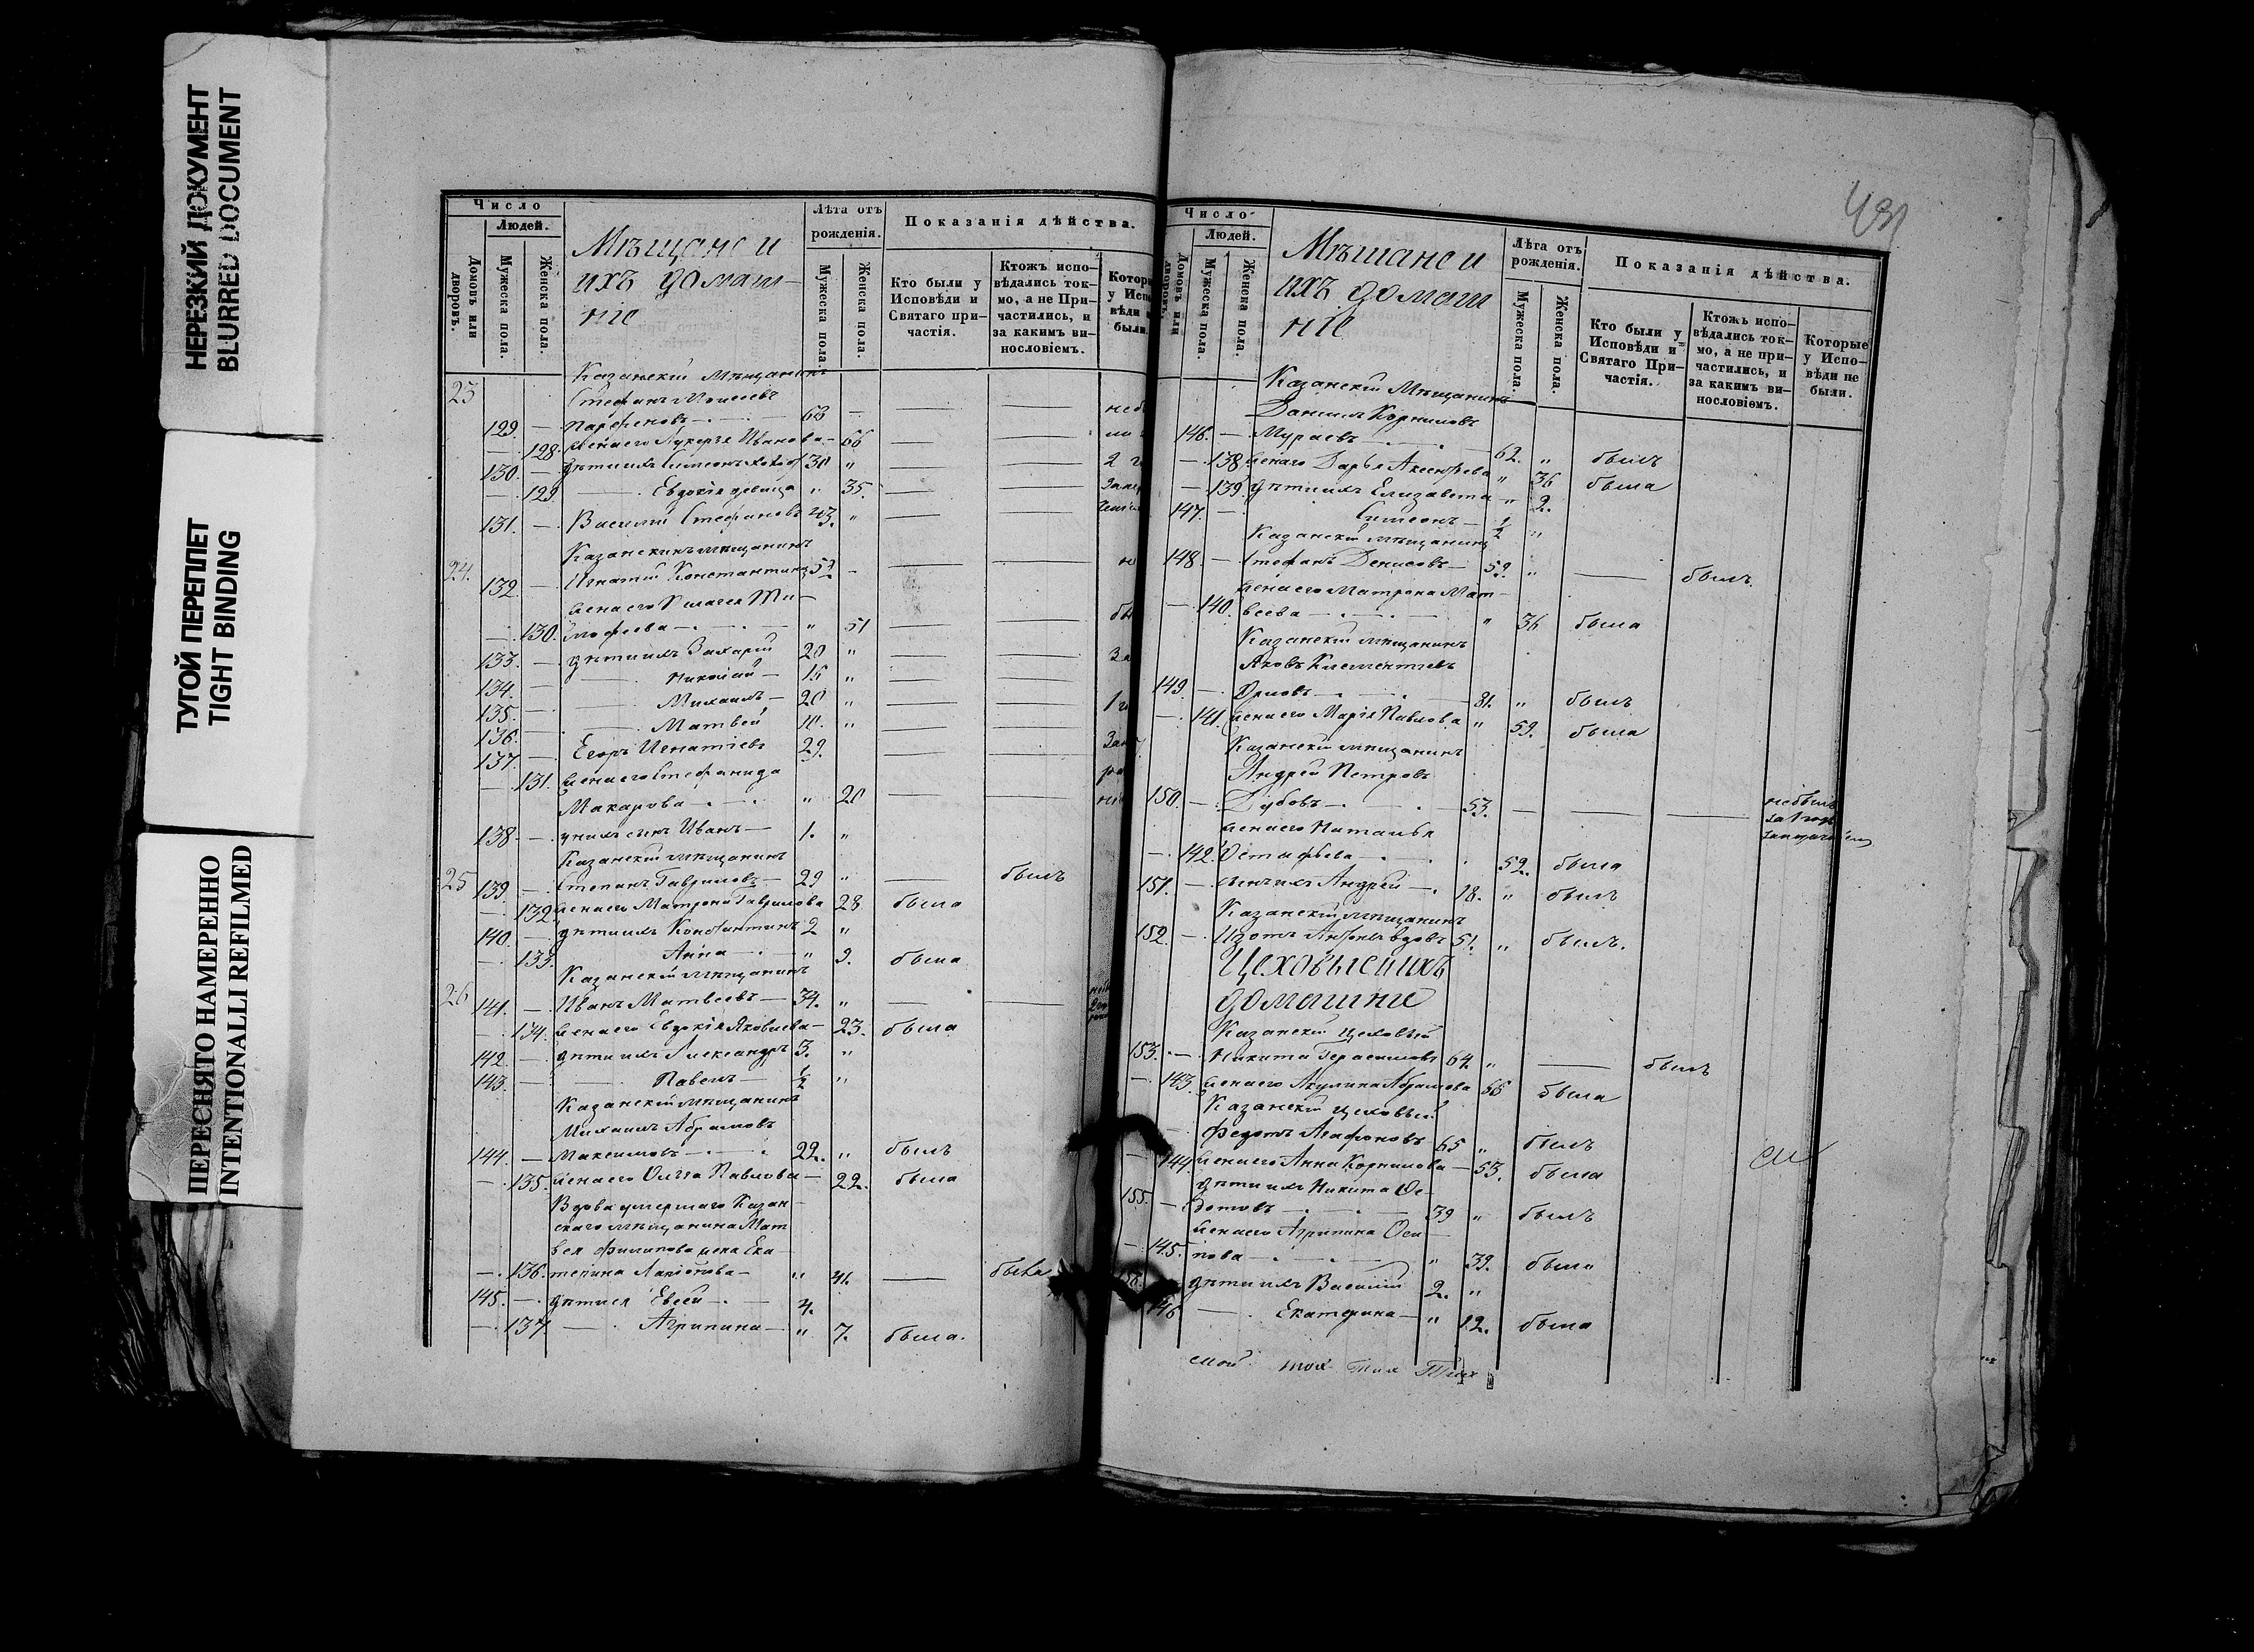 НЕРЕЗКИЙ ДОКУМЕНТ
BLURRED DOCUMENT
ТУГОЙ ПЕРЕПЛЕТ
TIGHT BINDING
ПЕРЕСНЯТО НАМЕРЕННО
INTENTIONALLI REFILMED
Число
Людей.
Домовъ или дворовъ.
Мужеска пола.
Женска пола.
Мѣщане и
ихъ домаш-
ніе
Лѣта отъ рожденія.
Мужеска пола.
Женска пола.
Показанія дѣйства.
Кто были у Исповѣди и Святаго при-частія.
Ктожъ испо-вѣдались ток-мо, а не При-частились, и за какимъ ви-нословіемъ.
Казанскій Мѣщанинъ
23
Стефанъ Моисеевъ
129. — Парфеновъ — 68 —
— 128. жена его Лукерья Иванова — 66
130. — дѣти ихъ Симеонъ 30 "
— 129. Евдокія девица " 35.
131. — Василій Стефановъ 43. "
Казанскій мѣщанинъ
24. 132 — Игнатій Константин 52 —
жена его Ти-
— 130. мофеева — " 51
133. — дѣти ихъ Захарій 20 "
134. — Николай — 15 "
135. — Михаилъ — 20 "
136. — Матвей 10. "
137. — Егоръ Игнатіевъ 29.
— 131. жена его Стефанида
Макарова — " 20
138. — у нихъ сынъ Иванъ — 1. "
Казанскій мѣщанинъ
25 139. — Степанъ Гавриловъ — 29 " — былъ
— 132. жена его Матрона Гаврилова 28 была
140. — дѣти ихъ Константинъ 2 "
— 133. Анна — " 9. была
Казанскій мѣщанинъ
26 141. — Иванъ Матвеевъ — 34. "
— 134. жена его Евдокія Яковлева — 23. была
142. — дѣти ихъ Александръ 3. "
143. — Павелъ — ½ "
Казанскій мѣщанинъ
Михаилъ Абрамовъ
144. — Максимовъ — 22. " былъ
— 135. жена его Ольга Павлова — 22. была
Вдова умершаго Казан-
скаго мѣщанина Мат
вея Филипова жена Ека-
— 136. терина — " 41. — была
145. — дѣти ея Евсей — 4.
— 137 — Агрипина — " 7. была.
431
Число
Людей.
Домовъ или дворовъ.
Мужеска пола.
Женска пола.
Мѣщане и
ихъ домаш
ніе
Лѣта отъ рожденія.
Мужеска пола.
Женска пола.
Показанія дѣйства.
Кто были у Исповѣди и Святаго При-частія.
Ктожъ испо-вѣдались ток-мо, а не при-частились, и за какимъ ви-нословіемъ.
Которые у Испо-вѣди не были.
Казанскій Мѣщанинъ
Даніилъ Корниловъ
146. — Мураевъ — 62. " былъ
— 138. жена его Дарья Аксенфева " 36 была
— 139. дѣти ихъ Елизавета — " 2.
147. — Симеонъ — ½ "
Казанскій мѣщанинъ
148. — Стефанъ Денисовъ — 52. " — былъ.
жена его Матрона Мат-
— 140. веева — " 36 была
Казанскій мѣщанинъ
Яковъ Климентіевъ
149. — Орловъ — 81. " былъ
— 141. жена его Марія Павлова " 59. была
Казанскій мѣщанинъ
Андрей Петровъ
150. — Дубовъ — 53. — — — небылъ
жена его Наталья
— 142. Остафьева — 52. была
151. — сынъ ихъ Андрей — 18. " былъ
Казанскій мѣщанинъ
152. — Изотъ вдовъ 51. " былъ.
Цеховые и ихъ
домашніе
Казанскій цеховый
153. — Никита Герасимовъ 64. " — былъ
— 143. жена его Акулина Абрамова 56 была
Казанскій цеховый
Федотъ Агафоновъ 65 " былъ
— 144. жена его Анна Корнилова — 53. была
дѣти ихъ Никита Ѳе-
155. — дотовъ — 39 " былъ
жена его Агрипина Оси-
— 145. пова — " 39. была
дѣти ихъ Василій 2. "
146 — Екатерина — " 12. была